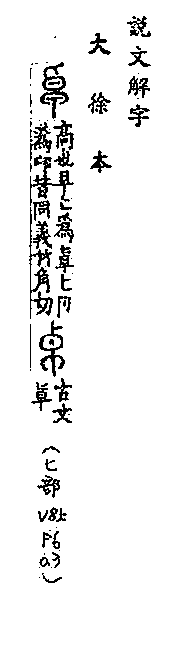 説文解字
大徐本
高也早匕爲𠦝匕卪
爲卬皆同義竹角切
古文
𠦝
(匕部
V8上
P6
a3)